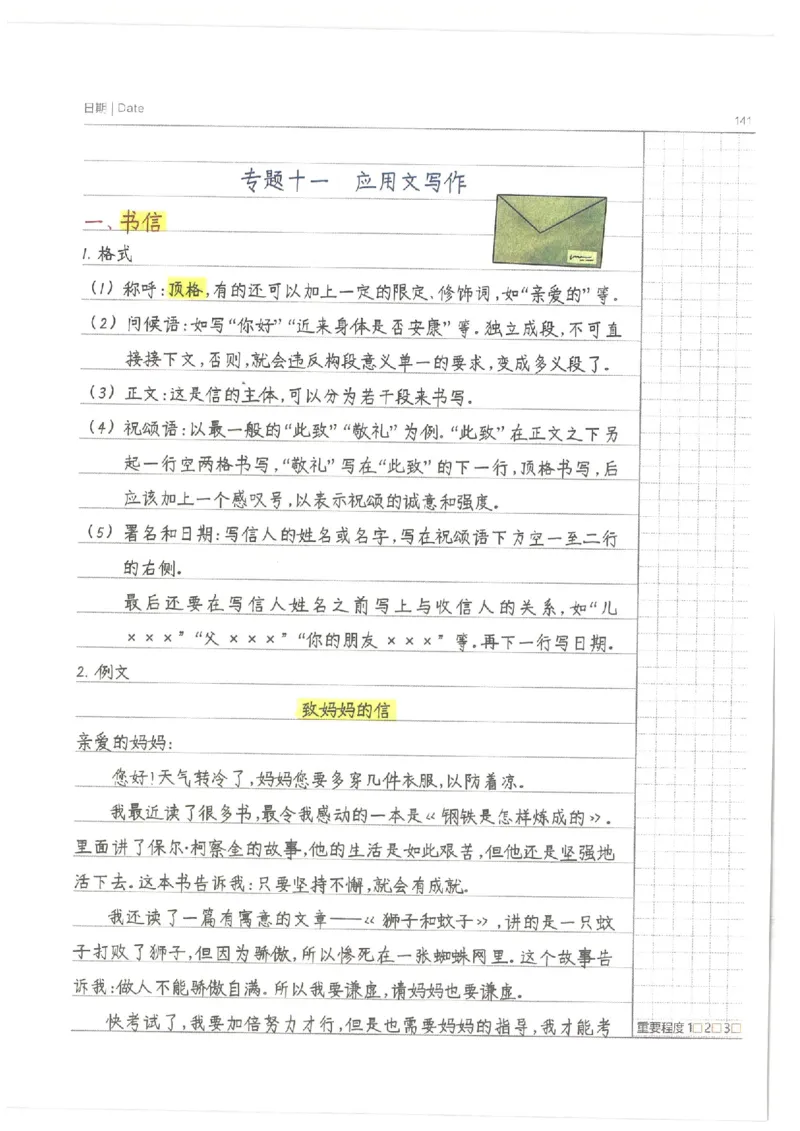 日期 | Date
141
专题十一 应用文写作
一、书信
1. 格式
(1) 称呼:顶格,有的还可以加上一定的限定、修饰词,如“亲爱的”等。
(2) 问候语:如写“你好”“近来身体是否安康”等。独立成段,不可直
接接下文,否则,就会违反构段意义单一的要求,变成多义段了。
(3) 正文:这是信的主体,可以分为若干段来书写。
(4) 祝颂语:以最一般的“此致”“敬礼”为例。“此致”在正文之下另
起一行空两格书写,“敬礼”写在“此致”的下一行,顶格书写,后
应该加上一个感叹号,以表示祝颂的诚意和强度。
(5) 署名和日期:写信人的姓名或名字,写在祝颂语下方空一至二行
的右侧。
最后还要在写信人姓名之前写上与收信人的关系,如“儿
×××”“父×××”“你的朋友×××”等。再下一行写日期。
2. 例文
致妈妈的信
亲爱的妈妈:
您好!天气转冷了,妈妈您要多穿几件衣服,以防着凉。
我最近读了很多书,最令我感动的一本是《钢铁是怎样炼成的》。
里面讲了保尔·柯察金的故事,他的生活是如此艰苦,但他还是坚强地
活下去。这本书告诉我:只要坚持不懈,就会有成就。
我还读了一篇有寓意的文章——《狮子和蚊子》,讲的是一只蚊
子打败了狮子,但因为骄傲,所以惨死在一张蜘蛛网里。这个故事告
诉我:做人不能骄傲自满。所以我要谦虚,请妈妈也要谦虚。
快考试了,我要加倍努力才行,但是也需要妈妈的指导,我才能考
重要程度 1□2□3□